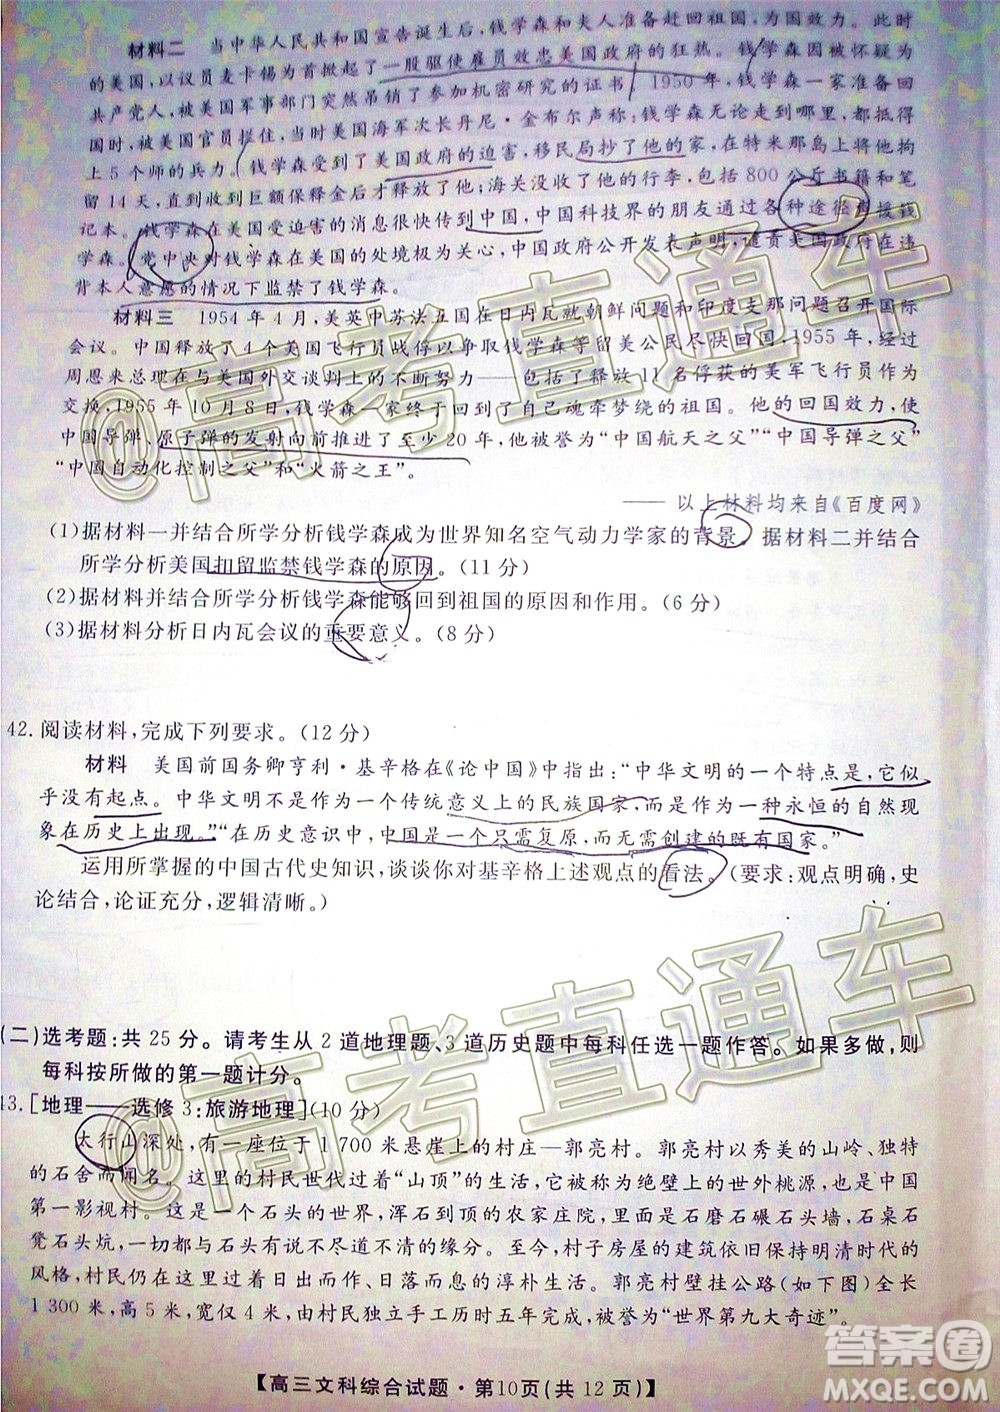 材料二 当中华人民共和国宣告诞生后,钱学森和夫人准备赶回祖国,为国效力。此时
的美国,以议员麦卡锡为首掀起了一股驱使雇员效忠美国政府的狂热。钱学森因被怀疑为
共产党人,被美国军事部门突然吊销了参加机密研究的证书。1950年,钱学森准备回
被美国官员拦住,当时美国海军次长丹尼·金布尔声称:钱学森无论走到哪里,都抵得
上5个师的兵力。钱学森受到了美国政府的迫害,移民局抄了他的家,在特米那岛上将他拘
留14天,直到收到巨额保释金后才释放了他;海关没收了他的行李,包括800公斤书籍和笔
记本。钱学森在美国受迫害的消息很快传到中国,中国科技界的朋友通过各种途径声援钱
学森。党中央对钱学森在美国的处境极为关心,中国政府公开发表声明,谴责美国政府在违
背本人意愿的情况下监禁了钱学森。
材料三 1954年4月,美英中苏法五国在日内瓦就朝鲜问题和印度支那问题召开国际
会议。中国释放了4个美国飞行员战俘以争取钱学森等留美公民尽快回国。1955年,经过
周恩来总理在与美国外交谈判上的不断努力——包括了释放11名俘获的美军飞行员作为
交换,1955年10月8日,钱学森一家终于回到了自己魂牵梦绕的祖国。他的回国效力,使
中国导弹、原子弹的发射向前推进了至少20年,他被誉为“中国航天之父”“中国导弹之父”
“中国自动化控制之父”和“火箭之王”。
——以上材料均来自《百度网》
(1)据材料一并结合所学分析钱学森成为世界知名空气动力学家的背景。据材料二并结合
所学分析美国扣留监禁钱学森的原因。(11分)
(2)据材料并结合所学分析钱学森能够回到祖国的原因和作用。(6分)
(3)据材料分析日内瓦会议的重要意义。(8分)
42.阅读材料,完成下列要求。(12分)
材料 美国前国务卿亨利·基辛格在《论中国》中指出:“中华文明的一个特点是,它似
乎没有起点。中华文明不是作为一个传统意义上的民族国家,而是作为一种永恒的自然现
象在历史上出现。”“在历史意识中,中国是一个只需复原,而无需创建的既有国家。”
运用所掌握的中国古代史知识,谈谈你对基辛格上述观点的看法。(要求:观点明确,史
论结合,论证充分,逻辑清晰。)
(二)选考题:共25分。请考生从2道地理题、3道历史题中每科任选一题作答。如果多做,则
每科按所做的第一题计分。
43.[地理——选修3:旅游地理](10分)
太行山深处,有一座位于1 700米悬崖上的村庄—郭亮村。郭亮村以秀美的山岭、独特
的石舍而闻名。村民们过着“山顶”的生活,因此郭亮村被称为绝壁上的世外桃源,是中国
第一影视村。这是一个石头的世界,浑石到顶的农家庄院,多的是石磨石碾石头墙,石桌石
凳石头炕,一切都与石头有着不道不清的缘分。至今,村子房屋的建筑依旧保持明清时代的
风格,村民仍过着日出而作、日落而息的淳朴生活。郭亮村壁挂公路(如下图)全长
1 300米,高5米,宽仅4米,由村民独立手工历时五年完成,被誉为“世界第九大奇迹”。
【高三文科综合试题·第10页(共12页)】
@高考直通车
@高考直通车
答案圈
MXQE.COM